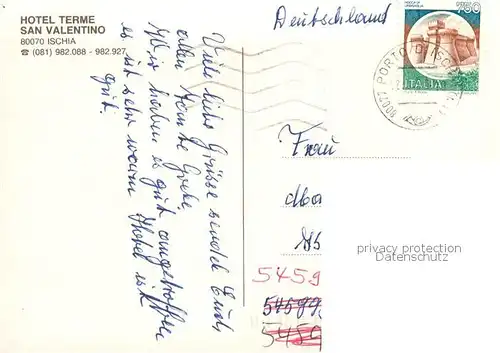 HOTEL TERME
SAN VALENTINO
80070 ISCHIA
☎ (081) 982.088 - 982.927
Viele liebe Grüsse sendet Euch
allen Grete
Wir haben es gut angetroffen
es ist sehr warm Hotel ist
gut.
Deutschland
750
ITALIA
PORTO D'ISCHIA
Frau
5459
privacy protection
Datenschutz